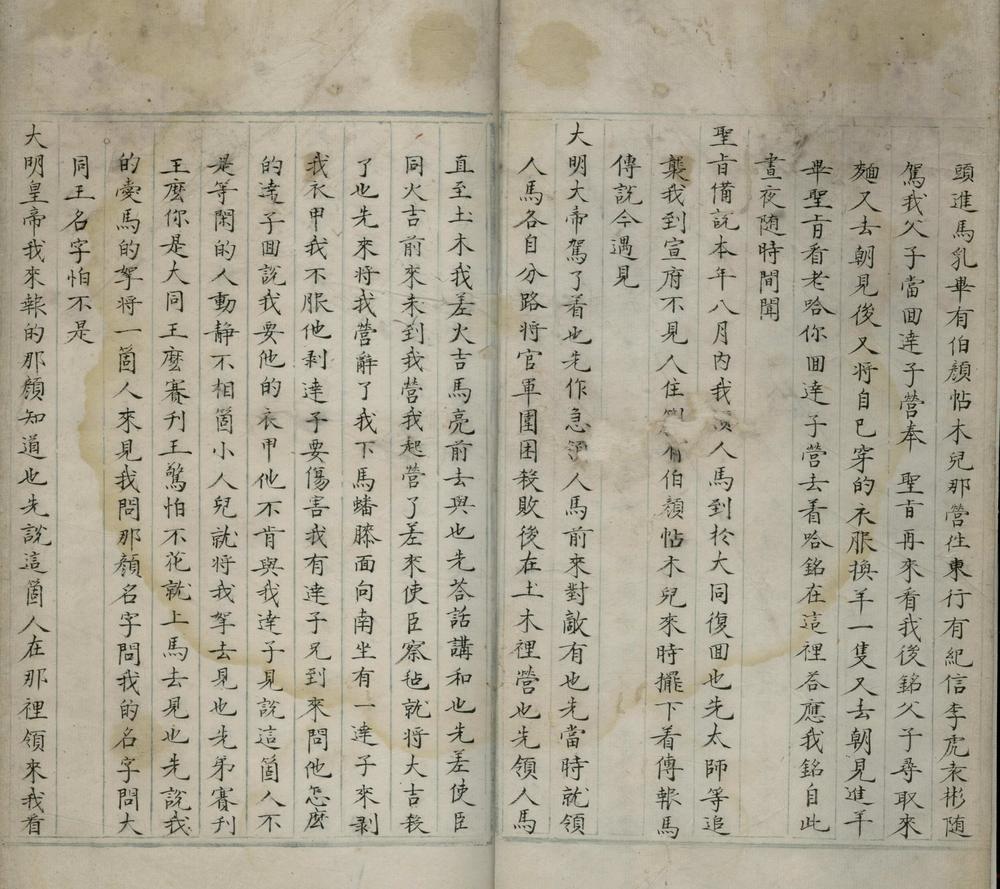 頭進馬乳畢有伯顏帖木兒那營往東行有紀信李虎衣彬随
駕我父子當回達子營奉 聖旨再來看我後銘父子尋取來
麵又去朝見後又将自已穿的衣服換羊一隻又去朝見進羊
畢聖旨看老哈你回達子營去看哈銘在這裡荅應我銘自此
晝夜随時間聞
聖旨備説本年八月內我 人馬到於大同復回也先太師等追
襲我到宣府不見人住 有伯顏帖木兒來時擺下看傳報馬
傳說今遇見
大明大帝駕了着也先作急 人馬前來對敵有也先當時就領
人馬各自分路將官軍圍困殺敗後在土木裡營也先領人馬
直至土木我差火吉馬亮前去與也先荅話講和也先差使臣
同火吉前來未到我營我起營了差來使臣察毡就將大吉殺
了也先來將我營辭了我下馬蟠膝面向南坐有一達子來剥
我衣甲我不服他剥達子要傷害我有達子兄到來問他怎麽
的達子回說我要他的衣甲他不肯與我達子見說這箇人不
是等閑的人動静不相箇小人兒就將我拏去見也先弟賽刊
王麽你是大同王麽賽刊王驚怕不花就上馬去見也先說我
的愛馬的拏將一箇人來見我問那顏名字問我的名字問大
同王名字怕不是
大明皇帝我來報的那顏知道也先說這箇人在那裡領來我看